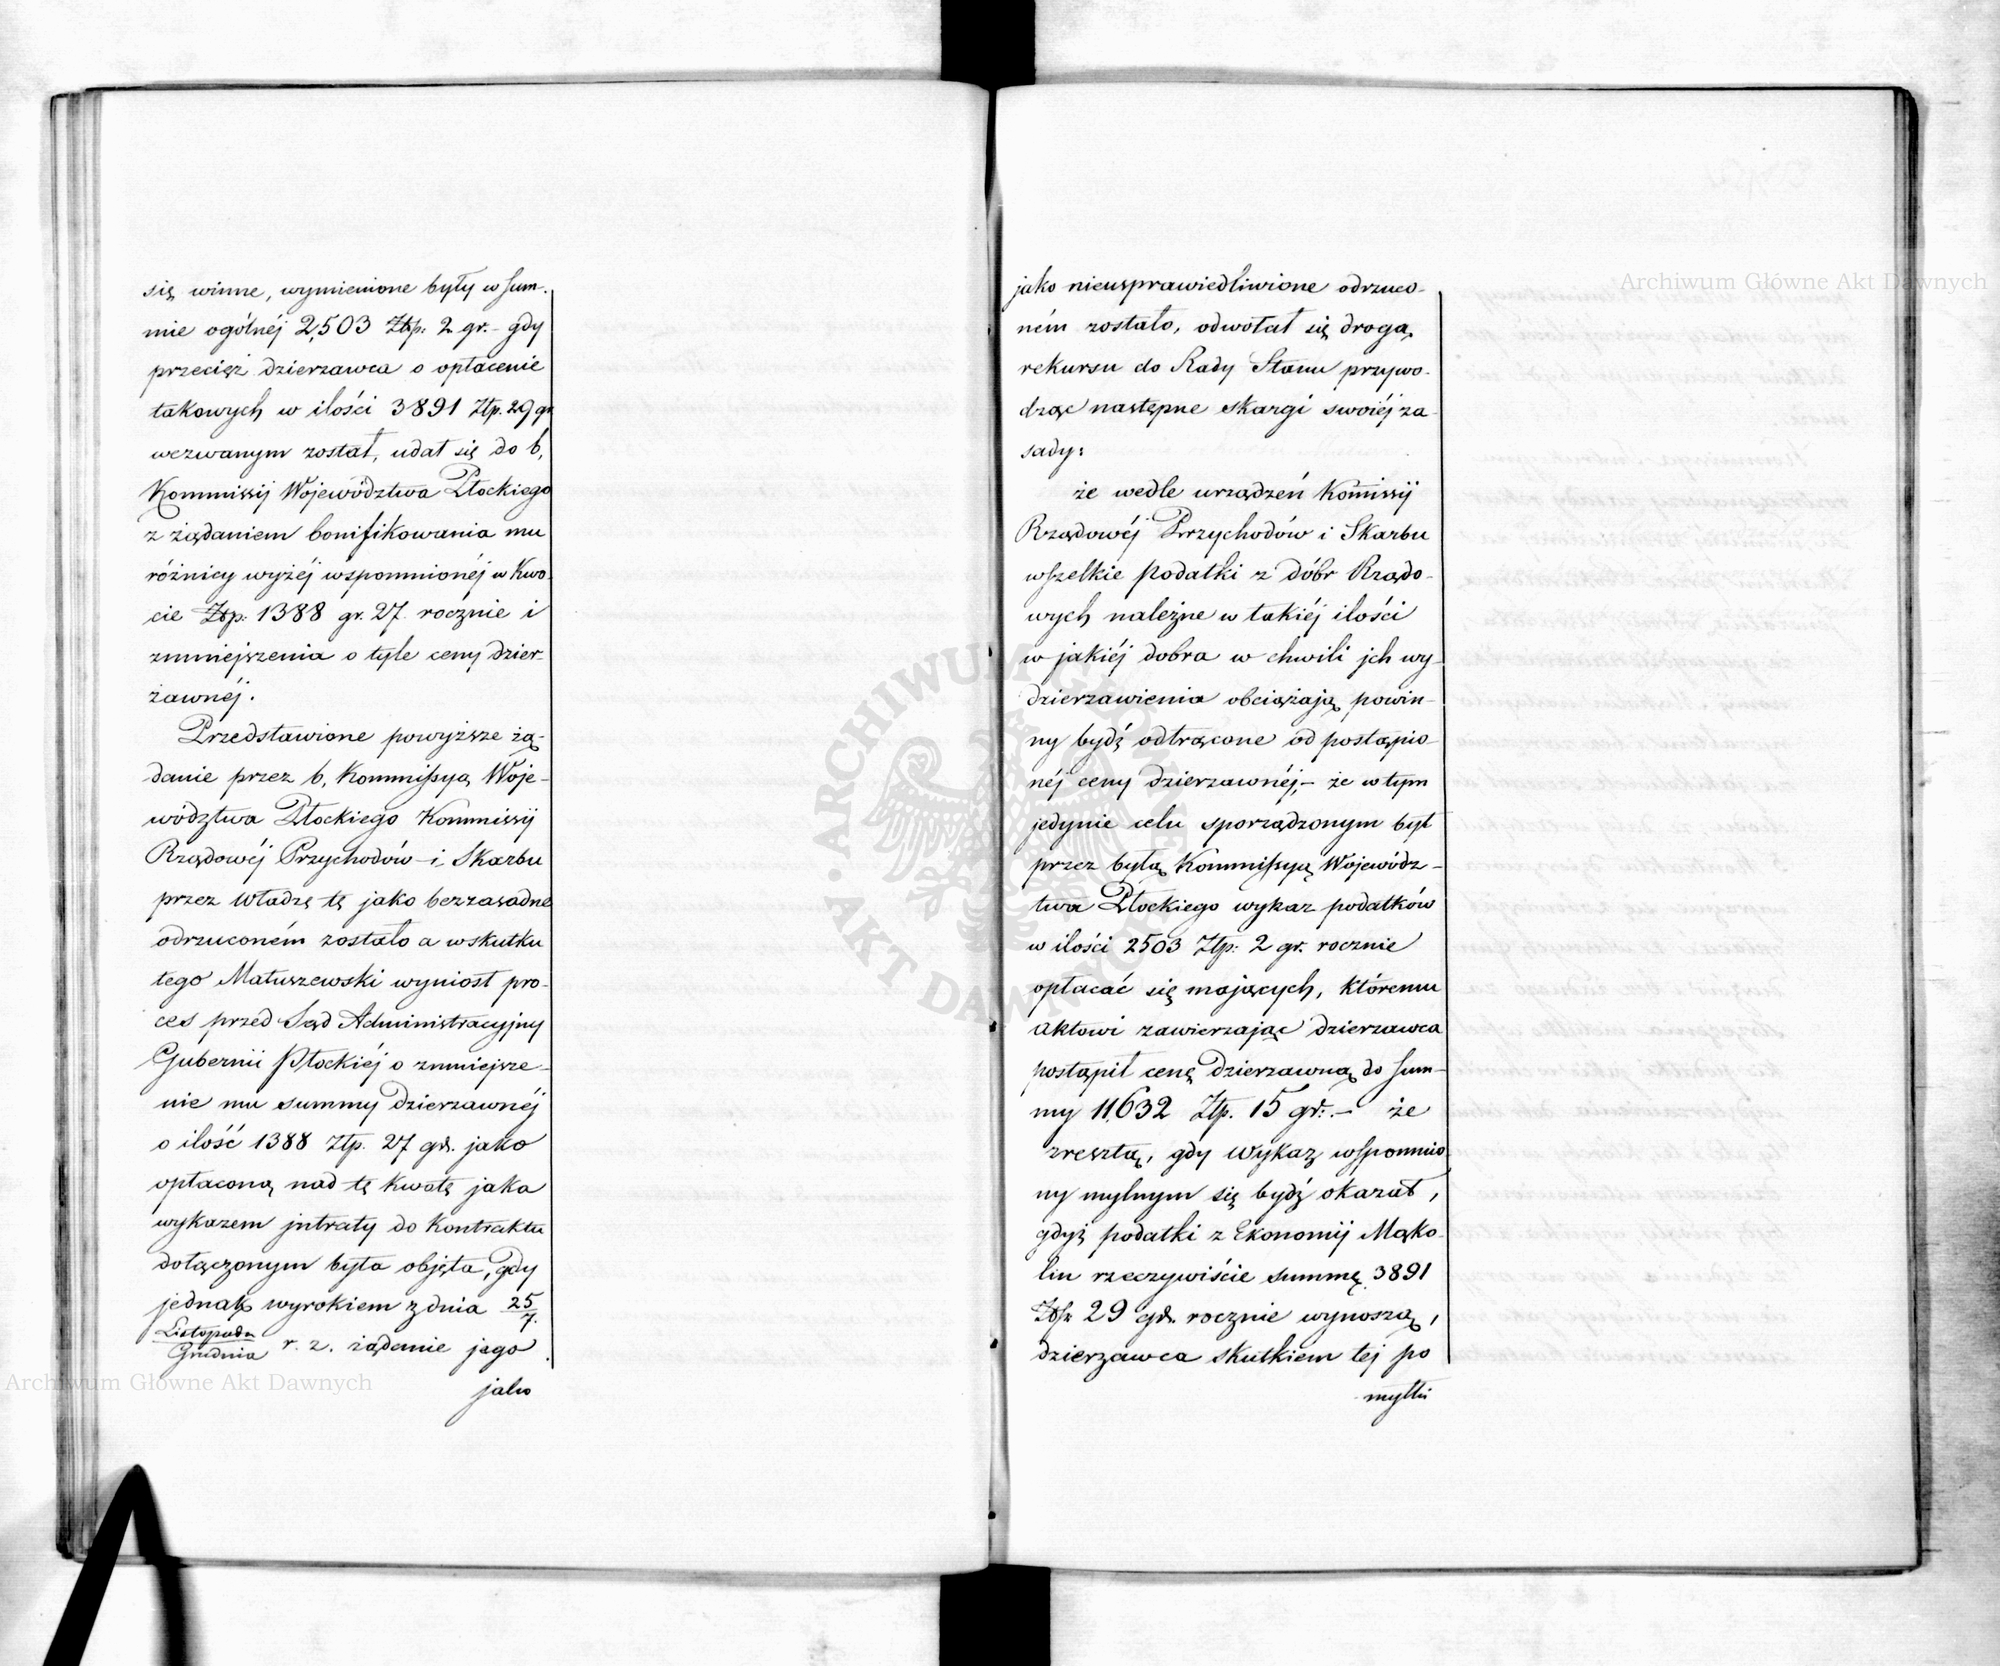 się winne, wymienione były w sum-
mie ogólnéj 2,503 Złp: 2 gr. - gdy
przecięż dzierzawca o opłacenie
takowych w ilości 3891 Złp. 29 gr.
wezwanym został, udał się do b,
Kommissij Województwa Płockiego
z żądaniem bonifikowania mu
różnicy wyżéj wspomnionéj w Kwo-
cie Złp: 1388 gr. 27. rocznie i
zmniejszenia o tyle ceny dzier-
żawnéj.
Przedstawione powyższe żą-
danie przez b, Kommissyą Woje-
wództwa Płockiego Kommissij
Rządowéj Przychodów i Skarbu
przez władzę tę jako bezzasadne
odrzuconém zostało a wskutku
tego Matuszewski wyniosł pro-
ces przed Sąd Administracyjny
Gubernii Płockiéj o zmniejsze-
nie mu summy Dzierzawnéj
o ilość 1388 Złp. 27 gr. jako
opłaconą nad tę Kwotę jaka
wykazem jntraty do Kontraktu
dołączonym była objęta, gdy
jednak wyrokiem z dnia 25/7.
Listopada/Grudnia r. z. żądanie jago
jako
jako nieusprawiedliwione odrzuco-
ném zostało, odwołał się drogą
rekursu do Rady Stanu przywo-
dząc następne skargi swoiéj za-
sady:
że wedle urządzeń Komissij
Rządowéj Przychodów i Skarbu
wszelkie podatki z dóbr Rządo-
wych należne w takiéj ilości
w jakiéj dobra w chwili jch wy-
dzierzawienia obciążają, powin-
ny bydź odtrącone od postąpio-
néj ceny dzierzawnéj, - że w tym
jedynie celu sporządzonym był
przez byłą Kommissyą Wojewódz-
twa Płockiego wykaz podatków
w ilości 2503 Złp: 2 gr. rocznie
opłacać się mających, któremu
aktowi zawierzając dzierzawca
postąpił cenę dzierzawną do sum-
my 11,632 Złp. 15 gr. - że
zresztą, gdy wykaz wspomnio
ny mylnym się bydź okazał,
gdyż podatki z Ekonomij Mąko-
lin rzeczywiście summę 3891
Złp. 29 gr. rocznie wynoszą,
dzierzawca skutkiem téj po
myłki
Archiwum Główne Akt Dawnych
Archiwum Główne Akt Dawnych